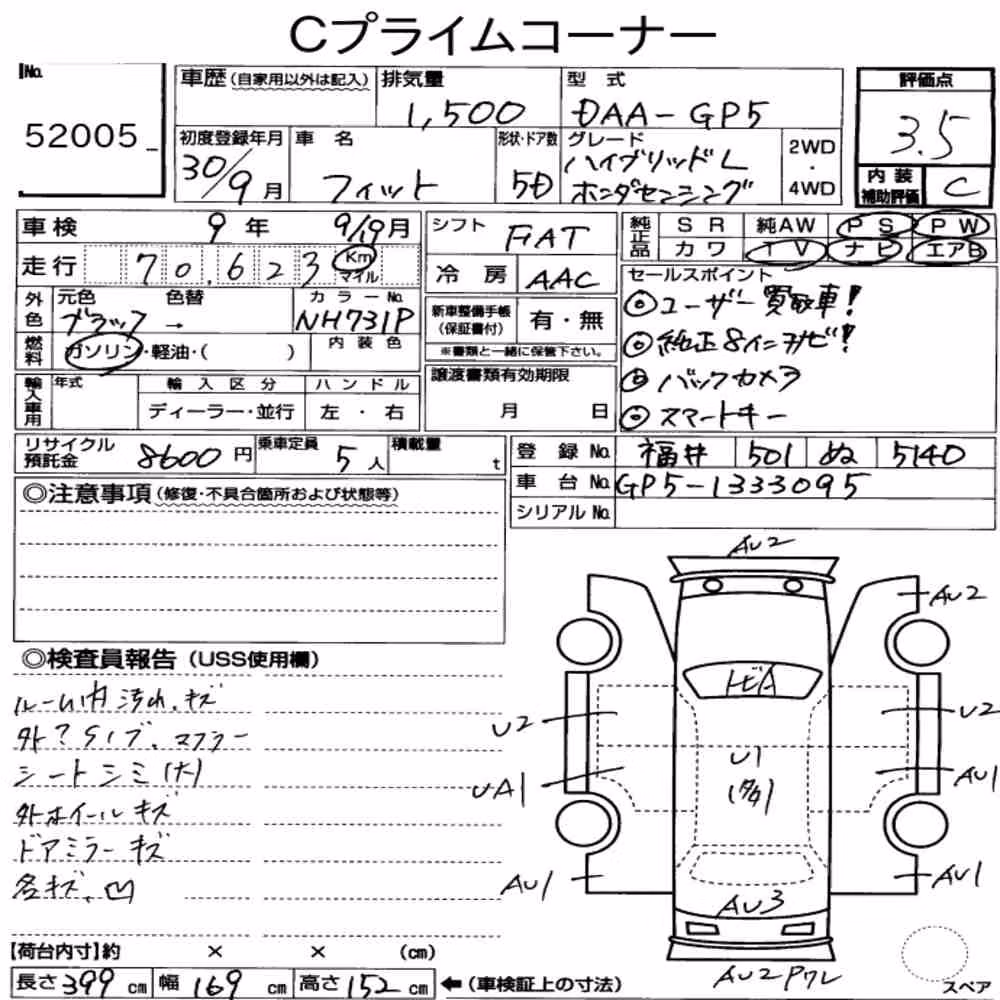 Cプライムコーナー
No. 52005
車歴(自家用以外は記入)
排気量 1,500
型式 DAA-GP5
評価点 3.5
初度登録年月 30/9月
車名 フィット
形状・ドア数 5D
グレード ハイブリッドL ホンダセンシング
2WD・4WD
内装補助評価 C
車検 9年 9/19月
シフト FAT
純正品 SR 純AW PS PW
カワ TV ナビ エアB
走行 70,623 Km マイル
冷房 AAC
セールスポイント
◎ユーザー買取車!
◎純正8インチナビ!
◎バックカメラ
◎スマートキー
外色 元色 ブラック → 色替
カラーNo. NH731P
新車整備手帳(保証書付) 有・無
※書類と一緒に保管下さい。
燃料 ガソリン・軽油・( )
内装色
譲渡書類有効期限 月 日
輸入車用 年式 輸入区分 ハンドル
ディーラー・並行 左・右
リサイクル預託金 8600円
乗車定員 5人
積載量 t
登録No. 福井 501 ぬ 5140
車台No. GP5-1333095
シリアルNo.
◎注意事項(修復・不具合箇所および状態等)
◎検査員報告(USS使用欄)
ルーム内汚れ、キズ
マフラー
シートシミ(大)
外ホイールキズ
ドアミラーキズ
各キズ、凹
AU2
AU2
トビA
U2
U2
U1
(多)
UA1
AU1
AU1
AU1
AU3
AU2 Pワレ
スペア
【荷台内寸】約 × × (cm)
長さ 399 cm 幅 169 cm 高さ 152 cm ←(車検証上の寸法)